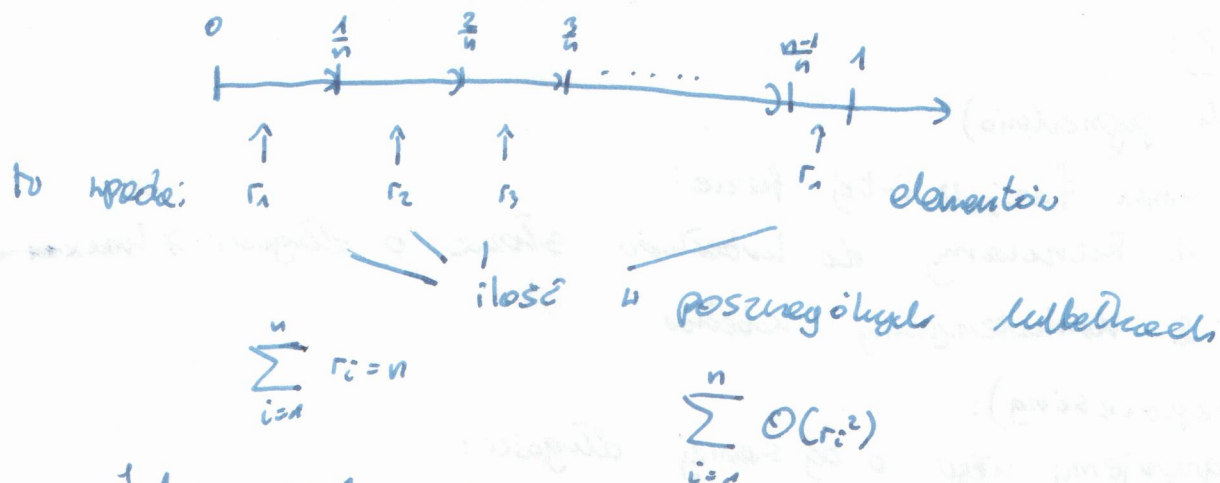 0 1/n 2/n 3/n ...... n-1/n 1
tu wpada: r₁ r₂ r₃ r₁ elementów
ilość w poszczególnych kubełkach
n n
∑ rᵢ = n ∑ O(rᵢ²)
i=1 i=1